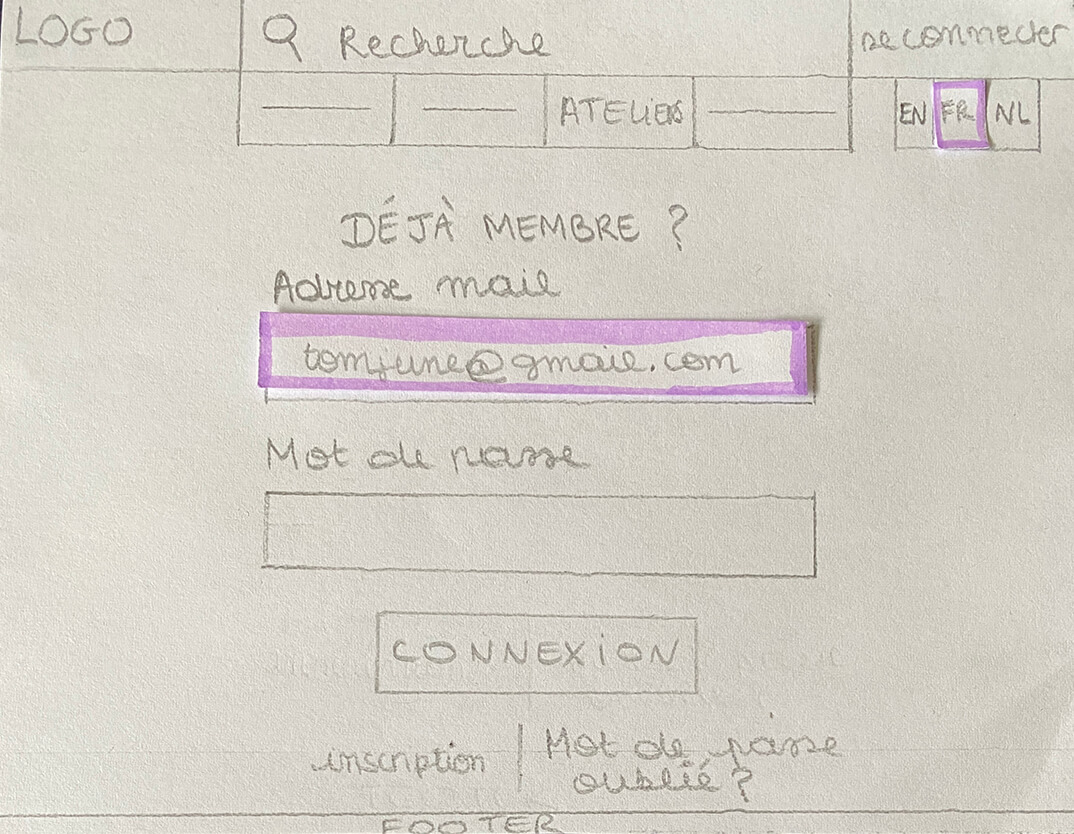 LOGO
Recherche
se connecter
ATELIERS
EN FR NL
DÉJÀ MEMBRE ?
Adresse mail
tomjune@gmail.com
Mot de passe
CONNEXION
inscription
Mot de passe
oublié ?
FOOTER